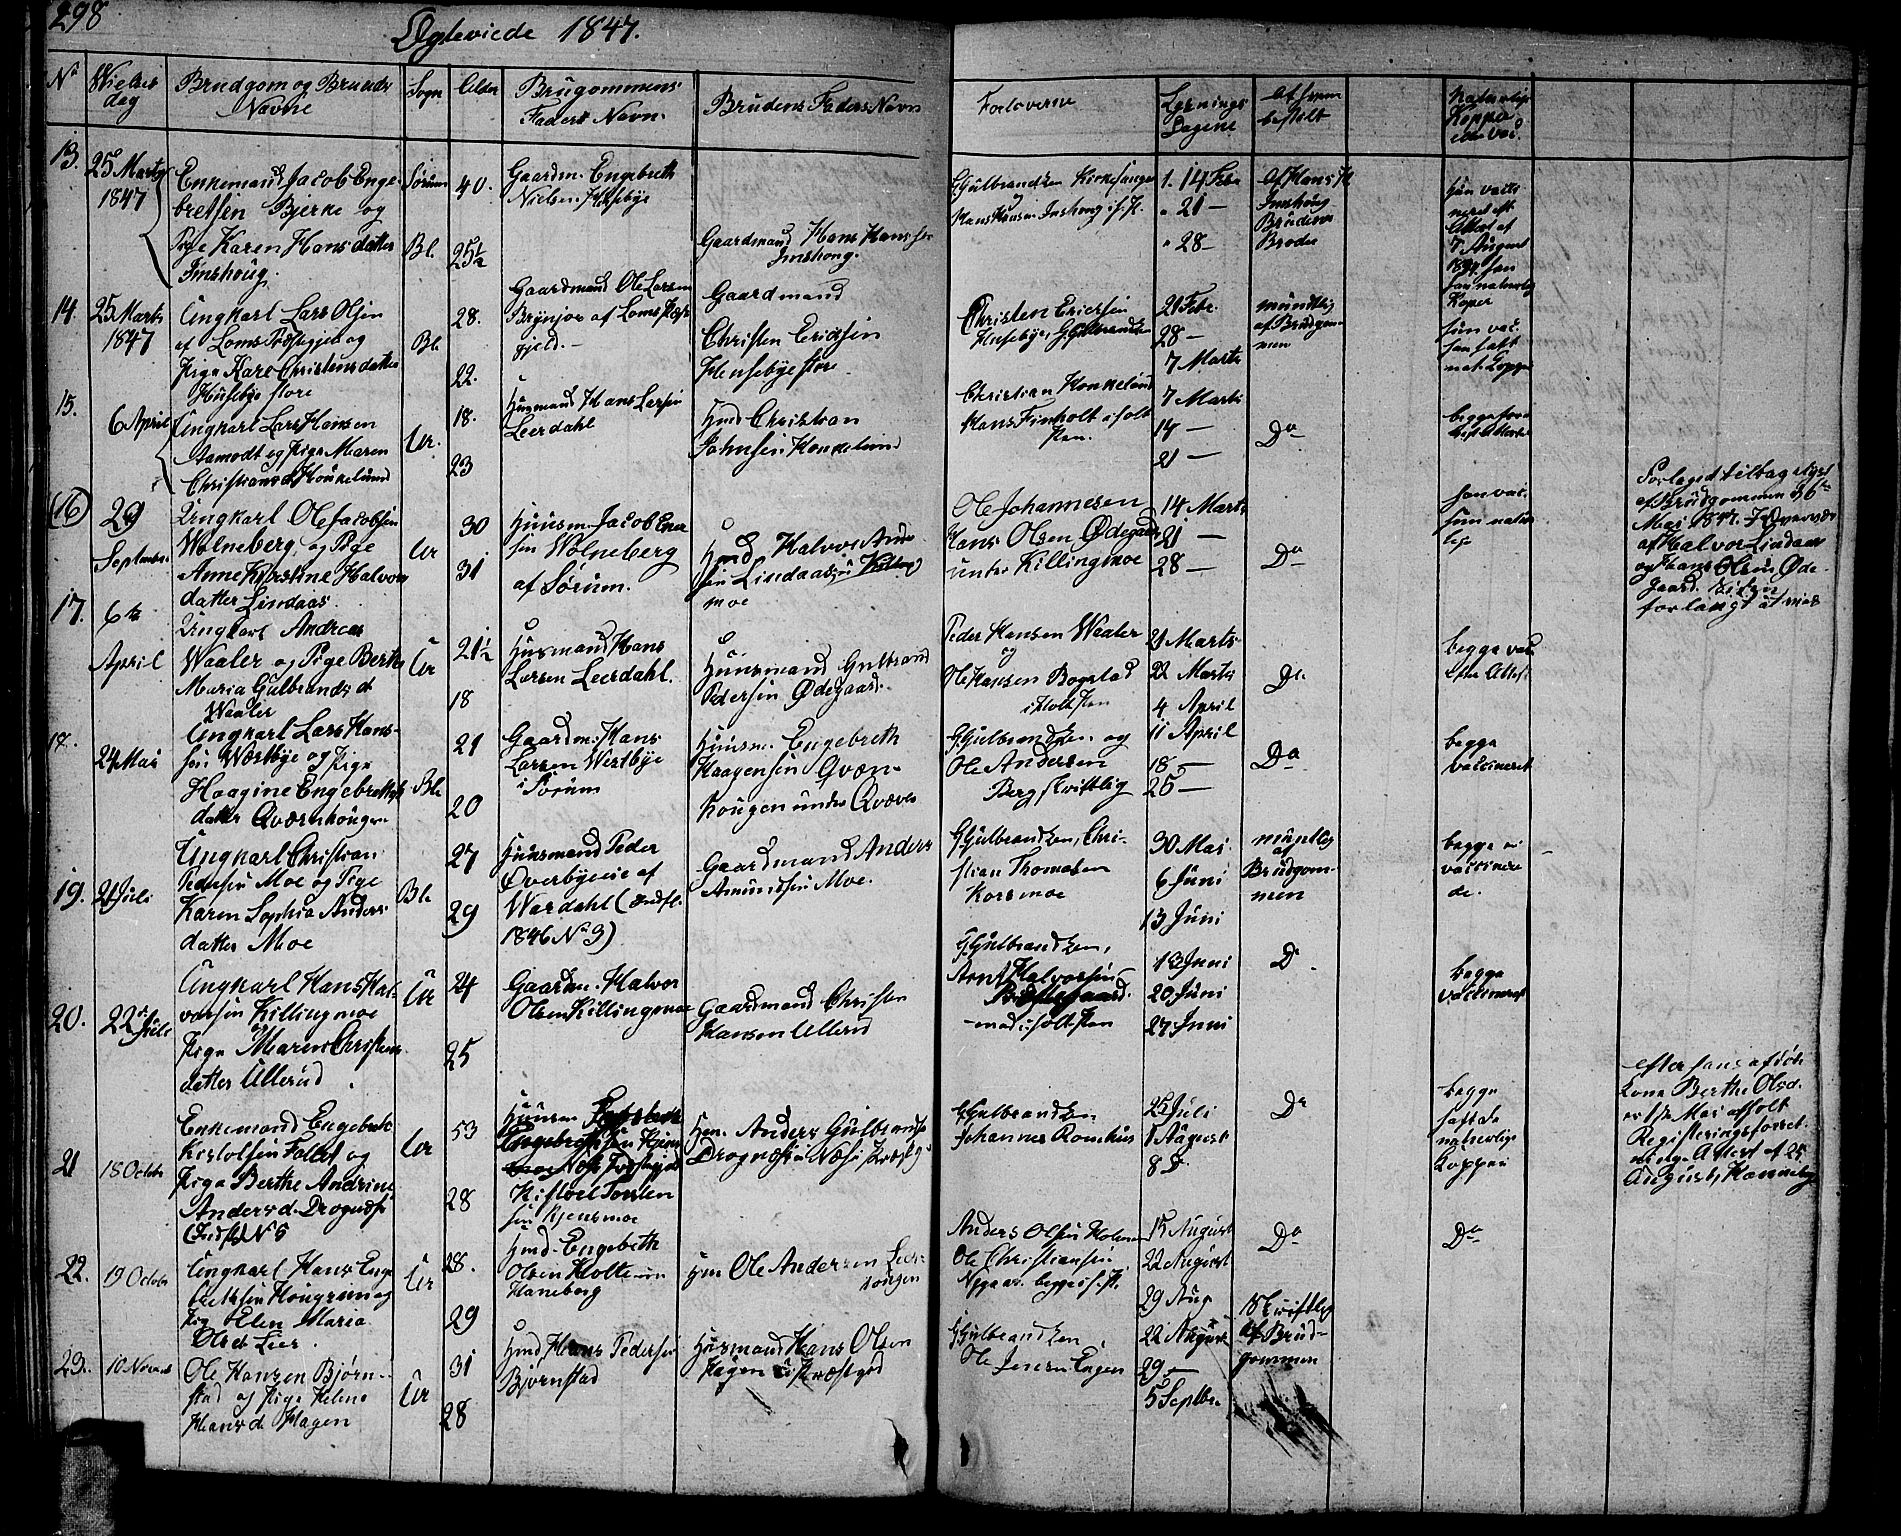 298
Ægteviede 1847.
No
Vielses
dag
Brudgom og Bruds
Navne
Sogn
Alder
Brugommens
Faders Navn.
Brudens Faders Navn
Forlovere
Lysnings
Dagene
Af hvem
bestilt
Naturlige
Kopper
eller vac.
13.
25 Marts
1847
Enkemand Jacob Enge
bretsen Bjerke og
Pige Karen Hansdatter
Imshoug.
Sørum
Bl.
40.
25½
Gaardm. Engebreth
Nielsen Huseby
Gaardmand Hans Hanssen
Imshoug.
G Gulbrandsen Kirkesanger
Hans Hansen Imshoug i f. H.
1. 14 Febr
" 21 —
" 28 —
Af Hans H
Imshoug
Brudens
Broder
hun vacci
neret eft
Attest af
7 August
han naturlig
Koper
14
25 Marts
1847
Ungkarl Lars Olsen
af Loms Præstegjel og
Pige Kare Christensdatter
Huseby store
Bl
28.
22.
Gaardmand Ole Larsen
af Loms Præste
gjeld. —
Gaardmand
Christen Ericksen
Husebye store
Christen Ericksen
Husebye, G Gulbrandsen
21 Febr.
28 —
7 Marts
mundtlig
af Brudgom
men
hun vac.
han haft
nat. Kopper
15.
6 April
Ungkarl Lars Hansen
Aamodt og Pige Maren
Christiansd Honkelund
Ur.
18.
23
Husmand Hans Larsen
Leerdahl
Hmd Christian
Johnsen Honkelund
Christian Honkelund
Hans Finholt i f olt
sten.
7 Marts
14 —
21 —
Do
(16)
29
September
Ungkarl Ole Jacobsen
Wolneberg og Pige
Anne Kirstine Halvors
datter Lindaas.
Ur
30
31
Huusm. Jacob Ener
sen Wolneberg
af Sørum.
Hmd Halvor Ande
sen Lindaas u Killing
moe
Ole Johannesen
Hans Olsen Ødegaard
under Killingmoe
14 Marts
21 —
28 —
Do
han vac.
hun natur
lige
Forlaget tilbagelyst
af Brudgommen 26
Mai 1847. I Overvær
af Halvor Lindaas
og Hans Olsen Øde-
gaard. Siden
forlangt at vies
17.
6te
April
Ungkarl Andreas
Waaler og Pige Berthe
Maria Gulbrands d
Waaler
Ur
21½
18
Husmand Hans
Larsen Leerdahl.
Huusmand Gulbrand
Pedersen Ødegaard.
Peder Hansen Waaler
og
Ole Hansen Bogstad
i Holtsten
21 Marts
22 Marts
4 April
Do
begge vac.
efter Attest
18.
24 Mai
Ungkarl Lars Hans-
sen Westbye og Pige
Haagine Engebretts
datter Qværnhougen
Bl
21
20
Gaardm. Hans
Larsen Westbye
i Sørum
Huusm. Engebreth
Haagensen Qværn-
hougen under Qværn
G Gulbrandsen og
Ole Andersen
Berg skriftlig
11 April
18 —
25 —
Do
begge
vaccineret
19.
21 Juli
Ungkarl Christian
Pedersen Moe og Pige
Karen Sophia Anders
datter Moe
Bl
27
29
Huusmand Peder
Overbyeie af
Wardahl (Indfl.
1846 No 9)
Gaardmand Anders
Amundsen Moe.
G Gulbrandsen, Chri-
stian Thomasen
Korsmoe
30 Mai
6 Juni
13 Juni
mundtlig
af
Brudgom-
men
begge
vaccinere
de.
20.
22 Juli
Ungkarl Hans Hal-
vorsen Killingmoe
Pige Maren Christens
datter Ullerud
Ur
24
25
Gaardm. Halvor
Olsen Killingmoe
Gaardmand Christen
Hansen Ullerud
G Gulbrandsen,
Arnt Halvorsen
13 Juni
20 Juni
27 Juni
Do
begge
vaccineret
21
15 Octobr
Enkemand Engebreth
Kistolsen Follet og
Pige Berthe Andrine
Anders d. Drognæs
Indfl N 5
Ur
53
28
Kistoel Torsten
sen Kjensmoe
Hm. Anders Gulbrands
Drognæs i Næs Præstg
G Gulbrandsen
Johannes Romhus
25 Juli
1 August
8 D
Do
begge
haft de
naturlige
Kopper
efter hans afdøde
Kone Berthe Olsd.
er Mai afholt
Registeringsforret-
ninge Attest af 25
August, Hanneborg
22.
19 Octobr
Ungkarl Hans Enge
brethsen Hougrim og
Pige Elen Maria
Olsd. Leer.
Ur
28.
29
Hmd. Engebreth
Olsen Holte
Haneborg
Hm Ole Andersen Leer
sougen
Anders Olsen Holme
Ole Christiansen
Nygaar. begge i f. H.
15 August
22 August
29 Aug
Do
Do
23.
10 Novembr
Ole Hansen Bjørn-
stad og Pige Helene
Hansd. Hagen
Ur
31
28
Hmd. Hans Pedersen
Bjørnstad
Husmand Hans Olsen
Hagen i Præstgjd
G Gulbrandsen,
Ole Jensen Engen
22 August
29 —
5 Septbr.
Skriftlig
af Brud-
gommen